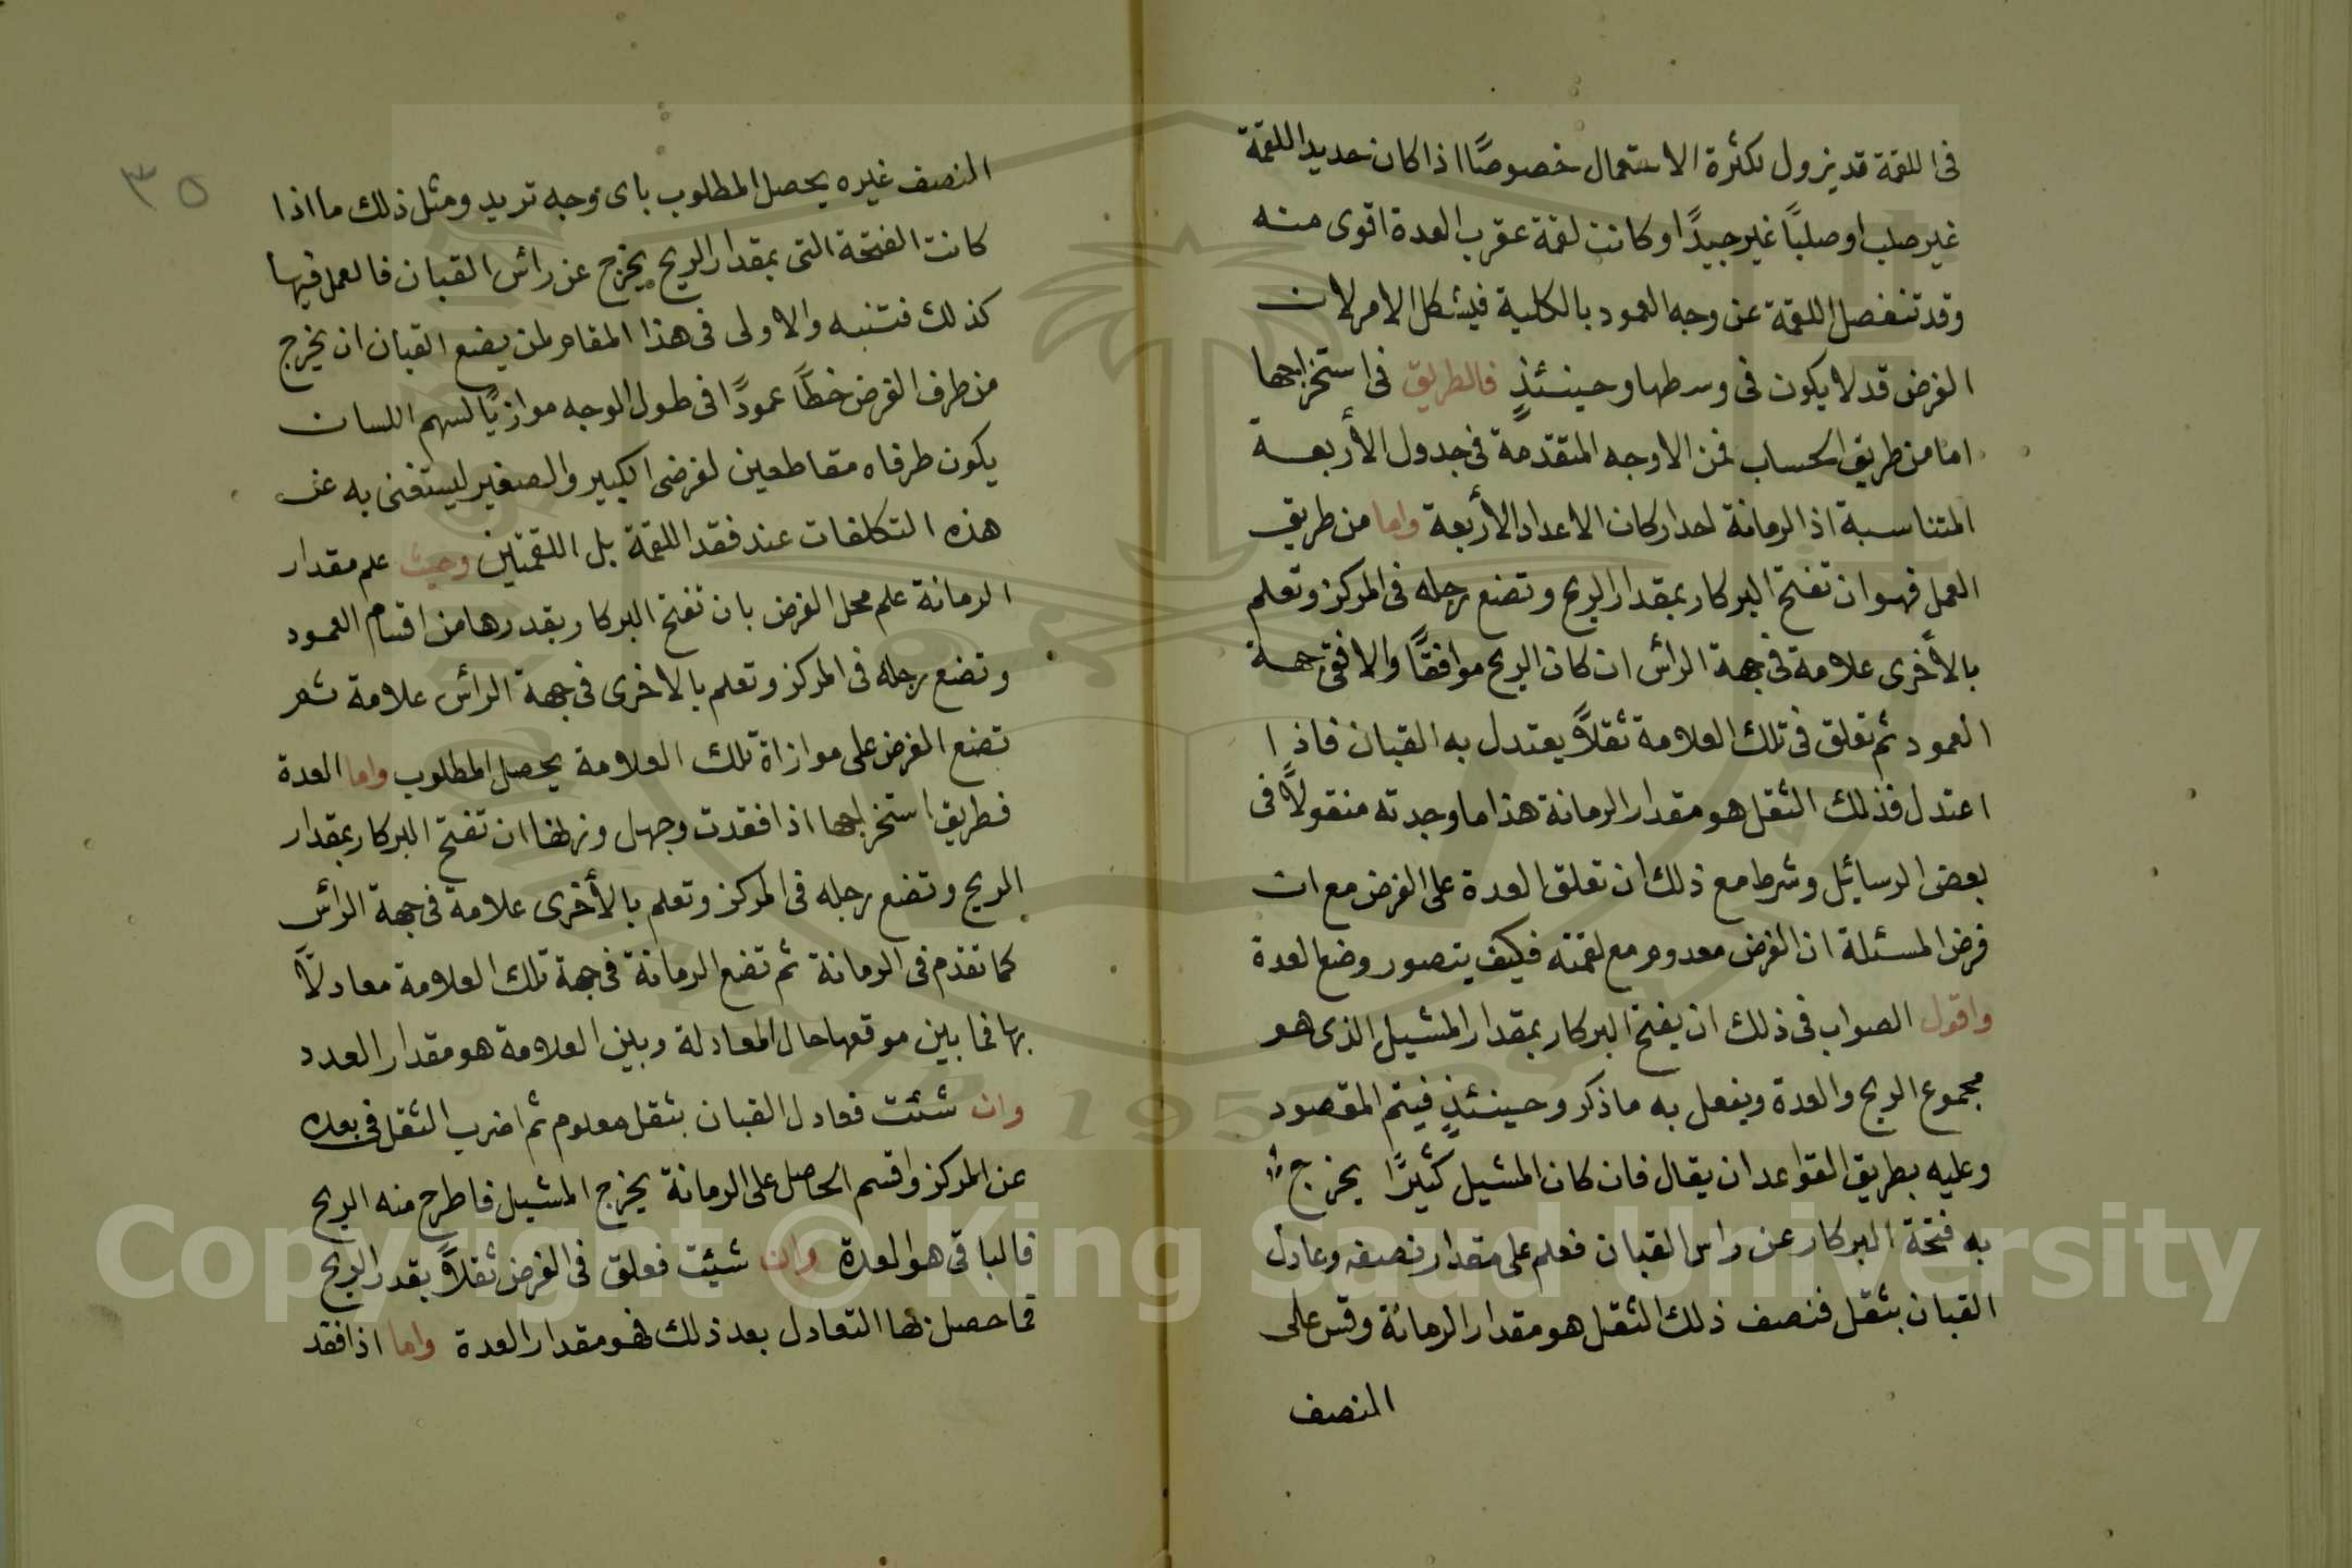 فى اللقمة قد يزول لكثرة الاستعمال خصوصًا اذا كان حديد اللقمة
غير صلب او صلبًا غير جيدًا وكانت لقمة عقرب العدة اقوى منه
وقد تنفصل اللقمة عن وجه العمود بالكلية فيشكل الامر لان
الفرض قد لا يكون فى وسطها وحينئذٍ فالطريق فى استخراجها
اما من طريق الحساب فمن الاوجه المتقدمة فى جدول الأربعة
المتناسبة اذ الرمانة احد اركان الاعداد الأربعة واما من طريق
العمل فهو ان تفتح البركار بمقدار الربح وتضع رجله فى المركز وتعلم
بالأخرى علامة فى جهة الراس ان كان الربح موافقًا والا فى جهة
العمود ثم تعلق فى تلك العلامة ثقلاً يعتدل به القبان فاذا
اعتدل فذلك الثقل هو مقدار الرمانة هذا ما وجدته منقولاً فى
بعض الرسائيل وشرط مع ذلك ان تعلق العدة على الفرض مع ان
فرض المسئلة ان الفرض معدوم مع لقمته فكيف يتصور وضع العدة
واقول الصواب فى ذلك ان يفتح البركار بمقدار المشيل الذى هو
مجموع الربح والعدة ويفعل به ما ذكر وحينئذٍ فيتم المقصود
وعليه بطريق القواعد ان يقال فان كان المشيل كثيرًا يخرج
به فتحة البركار عن راس القبان فعلم على مقدار نصفه وعادل
القبان بثقل فنصف ذلك الثقل هو مقدار الرمانة وقس على
المنصف
٣٥
المنصف غيره يحصل المطلوب باى وجه تريد ومثل ذلك ما اذا
كانت الفتحة التى بمقدار الربح يخرج عن رائس القبان فالعمل فيها
كذلك فتنبه والاولى فى هذا المقام لمن يضع القبان ان يخرج
من طرف الفرض خطًا عمودًا فى طول الوجه موازيًا لسهم اللسان
يكون طرفاه مقاطعين لفرضى الكبير والصغير ليستغنى به عن
هذه التكلفات عند فقد اللقمة بل اللقمتين وحيث علم مقدار
الرمانة علم محل الفرض بان تفتح البركار بقدرها من اقسام العمود
وتضع رجله فى المركز وتعلم بالاخرى فى جهة الرائس علامة ثم
تضع الفرض على موازاة تلك العلامة يحصل المطلوب واما العدة
فطريق استخراجها اذا فقدت وجهل وزنها ان تفتح البركار بمقدار
الربح وتضع رجله فى المركز وتعلم بالأخرى علامة فى جهة الرائس
كما تقدم فى الرمانة ثم تضع الرمانة فى جهة تلك العلامة معادلاً
بها فما بين موقعها حال المعادلة وبين العلامة هو مقدار العدد
وان شئت فعادل القبان بثقل معلوم ثم اضرب الثقل فى بعده
عن المركز واقسم الحاصل على الرمانة يخرج المشيل فاطرح منه الربح
فالباقى هو العدة وان شيئت فعلق فى الفرض ثقلاً بقدر الربح
فما حصل بها التعادل بعد ذلك فهو مقدار العدة واما اذا فقد
Copyright © King Saud University
1957